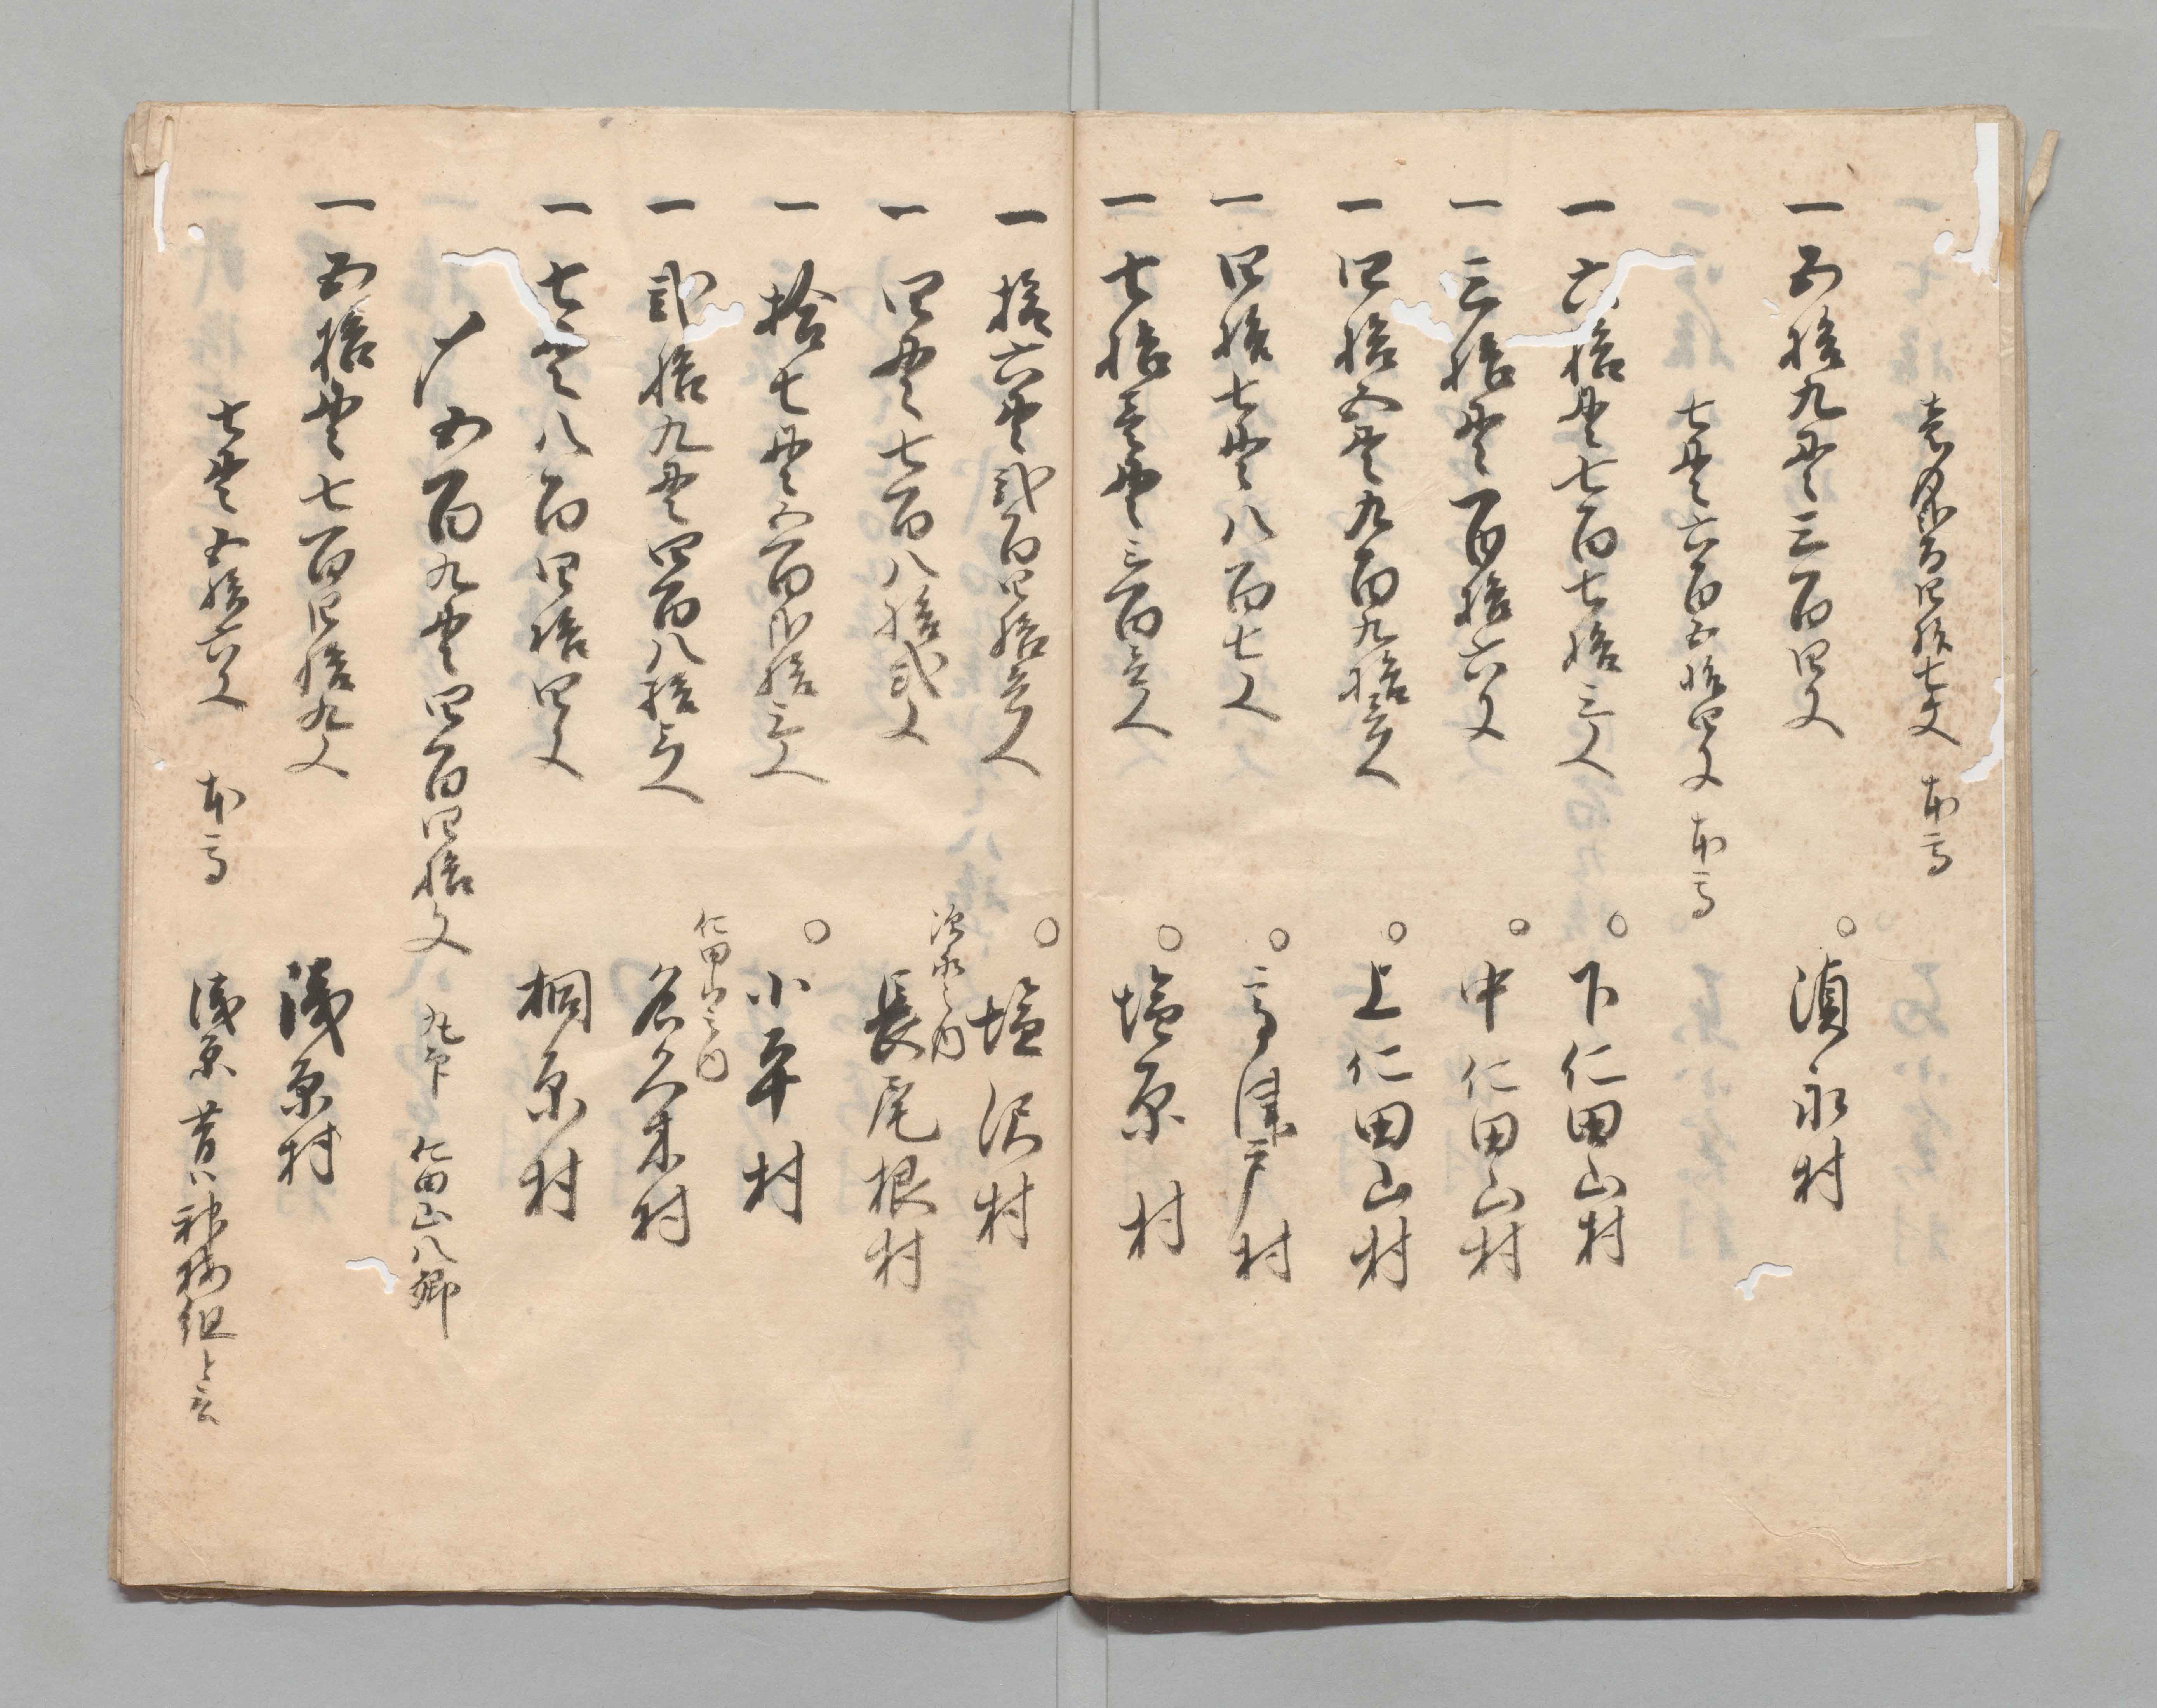 壱貫百四拾七文　本高
一　五拾九貫三百四文　○須永村
七貫六百五拾四文　本高
一　六拾貫七百七拾三文　○下仁田山村
一　三拾貫百拾六文　○中仁田山村
一　四拾五貫九百九拾壱文　○上仁田山村
一　四拾七貫八百七文　○高津戸村
一　七拾壱貫三百壱文　○塩原村
一　拾六貫弐百四拾壱文　○塩沢村
一　四貫七百八拾弐文　須永之内　長尾根村
一　拾七貫六百六拾三文　○小平村
一　弐拾九貫四百八拾三文　仁田山之内　名久木村
一　七貫八百四拾四文　桐原村
〆五百九貫四百四拾文　仁田山八郷
一　五拾貫七百四拾九文　浅原村
七貫五拾六文　本高　浅原昔ハ神梅組と云